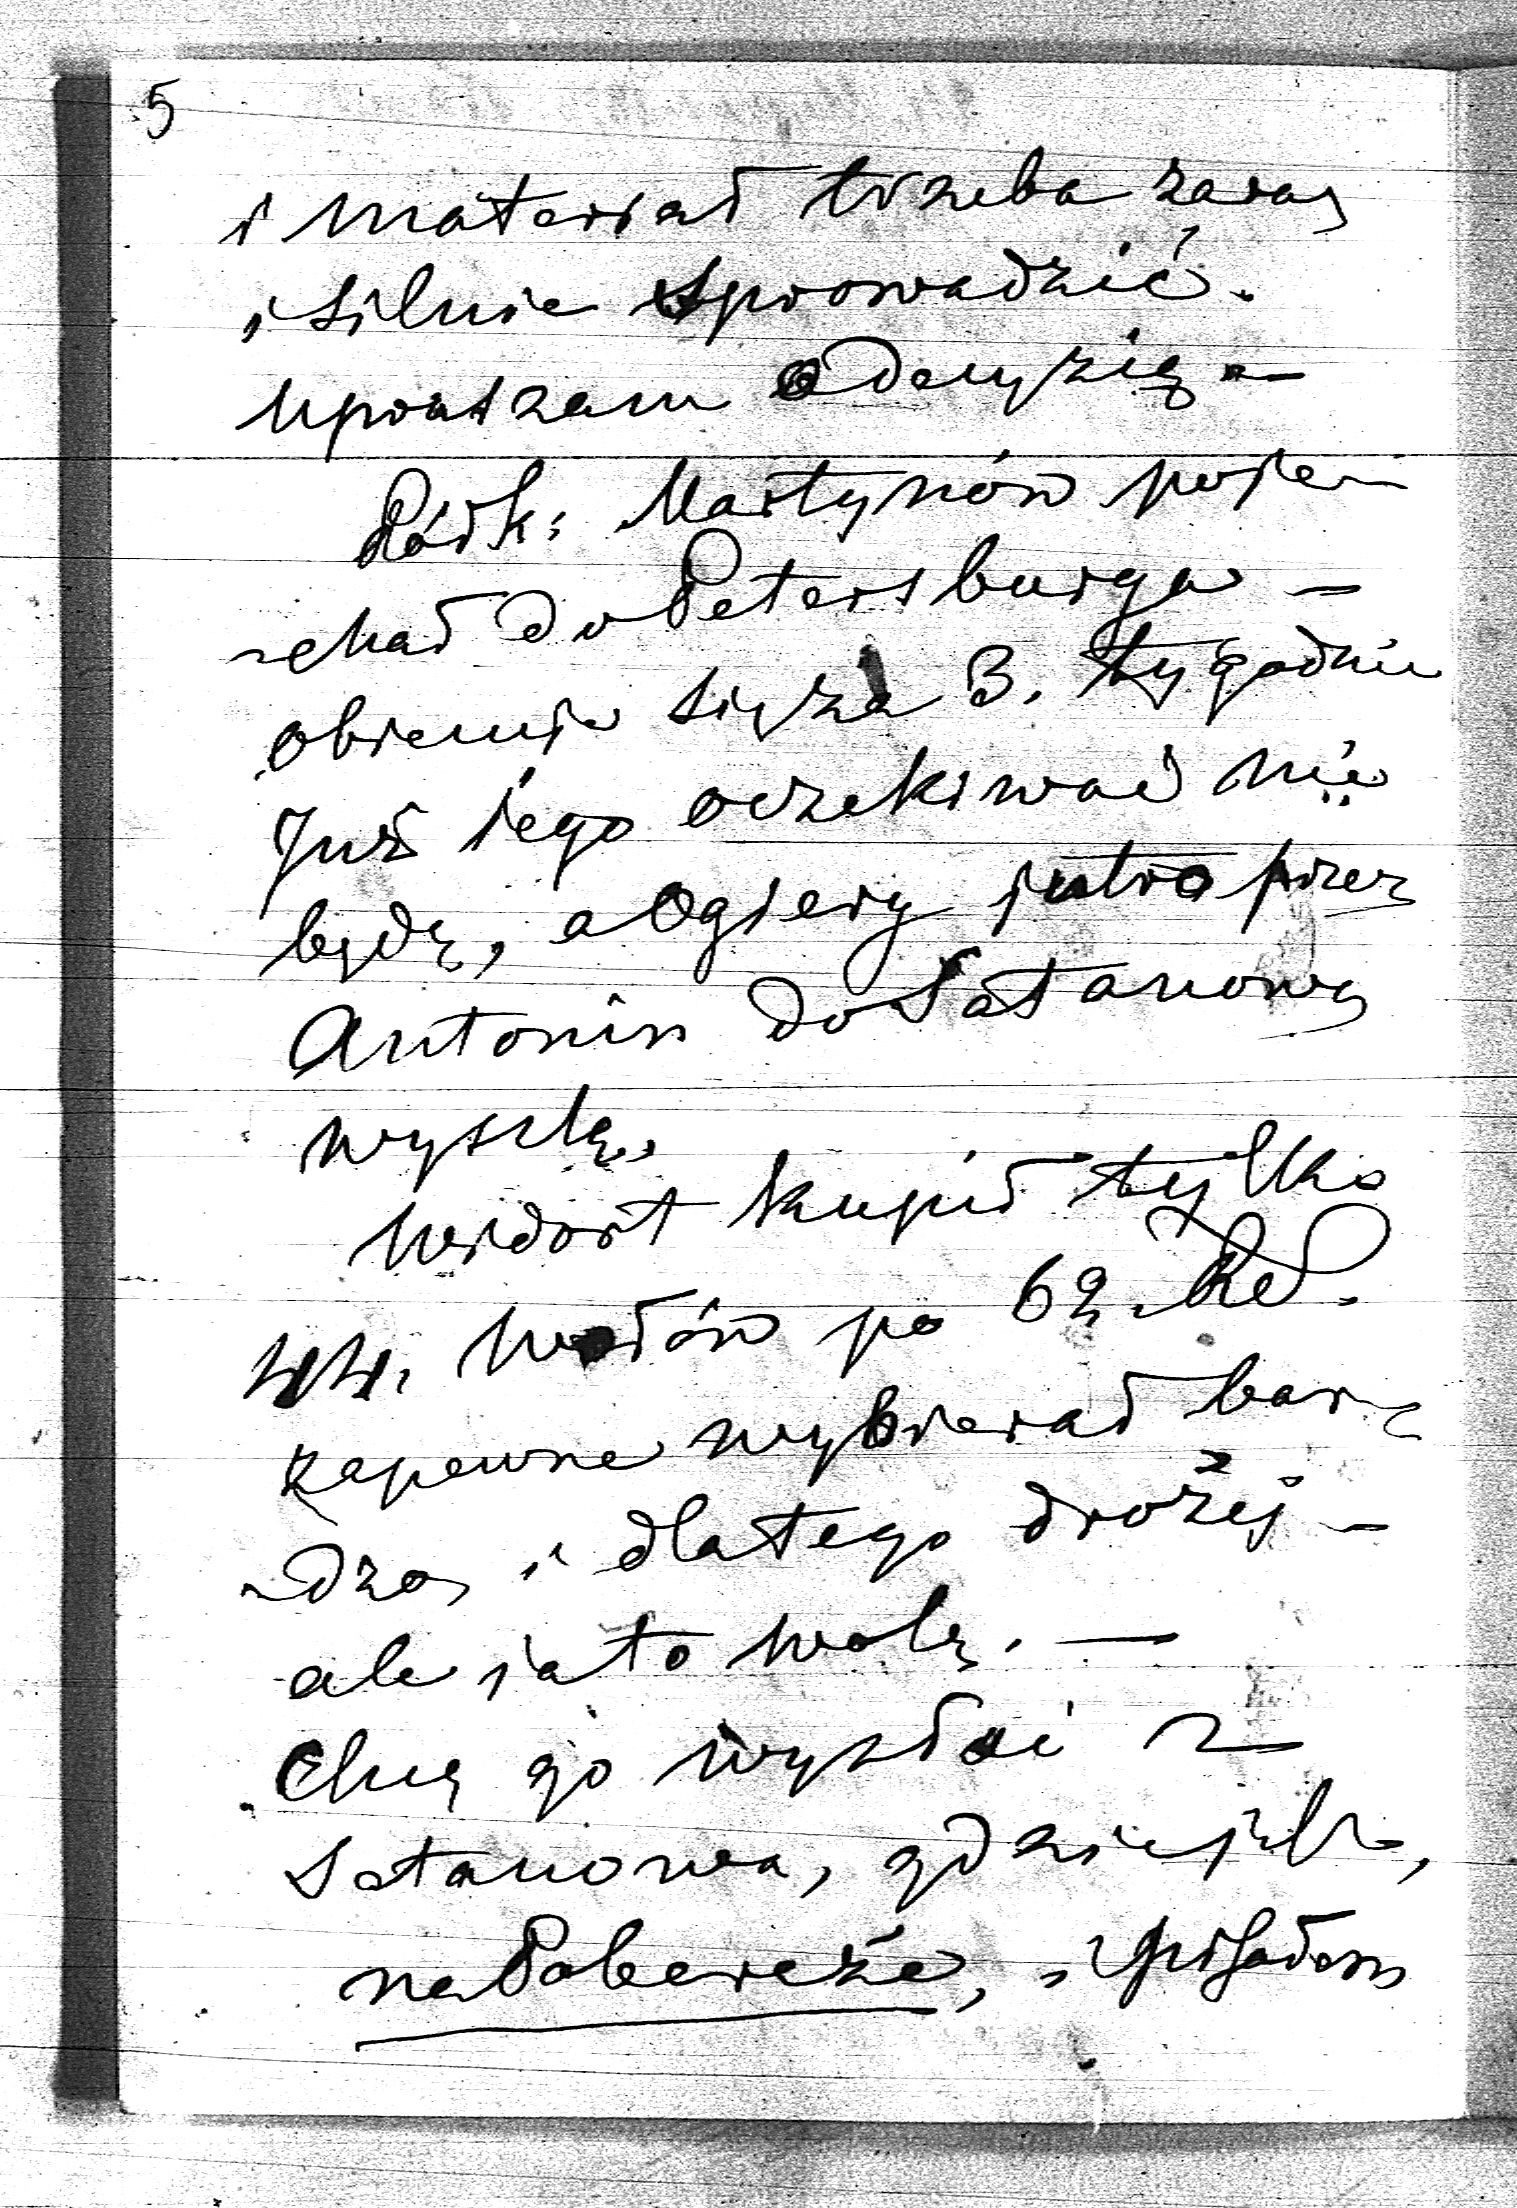 5
i materiał trzeba zaraz
i silnie sprowadzić.
upraszam o decyzią —
Półk: Martynów poje-
-chał do Petersburga —
obiecuje się za 3. tygodnie
Już jego oczekiwać nie
będę, a Ogiery jutro przez
Antonin do Satanowa
wyszlę.
Weidort kupił tylko
44. wołów po 62. Rd.
zapewne wybierał bar-
-dzo, i dlatego drożej —
ale ja to wolę. —
Chcę go wysłać z
Satanowa, gdzie jest,
na Pobereże,